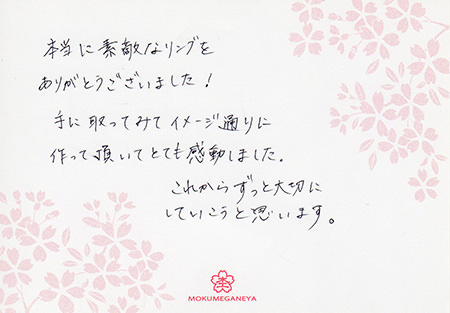 本当に素敵なリングを
ありがとうございました!
手に取ってみてイメージ通りに
作って頂いてとても感動しました.
これからずっと大切に
していこうと思います。
MOKUMEGANEYA